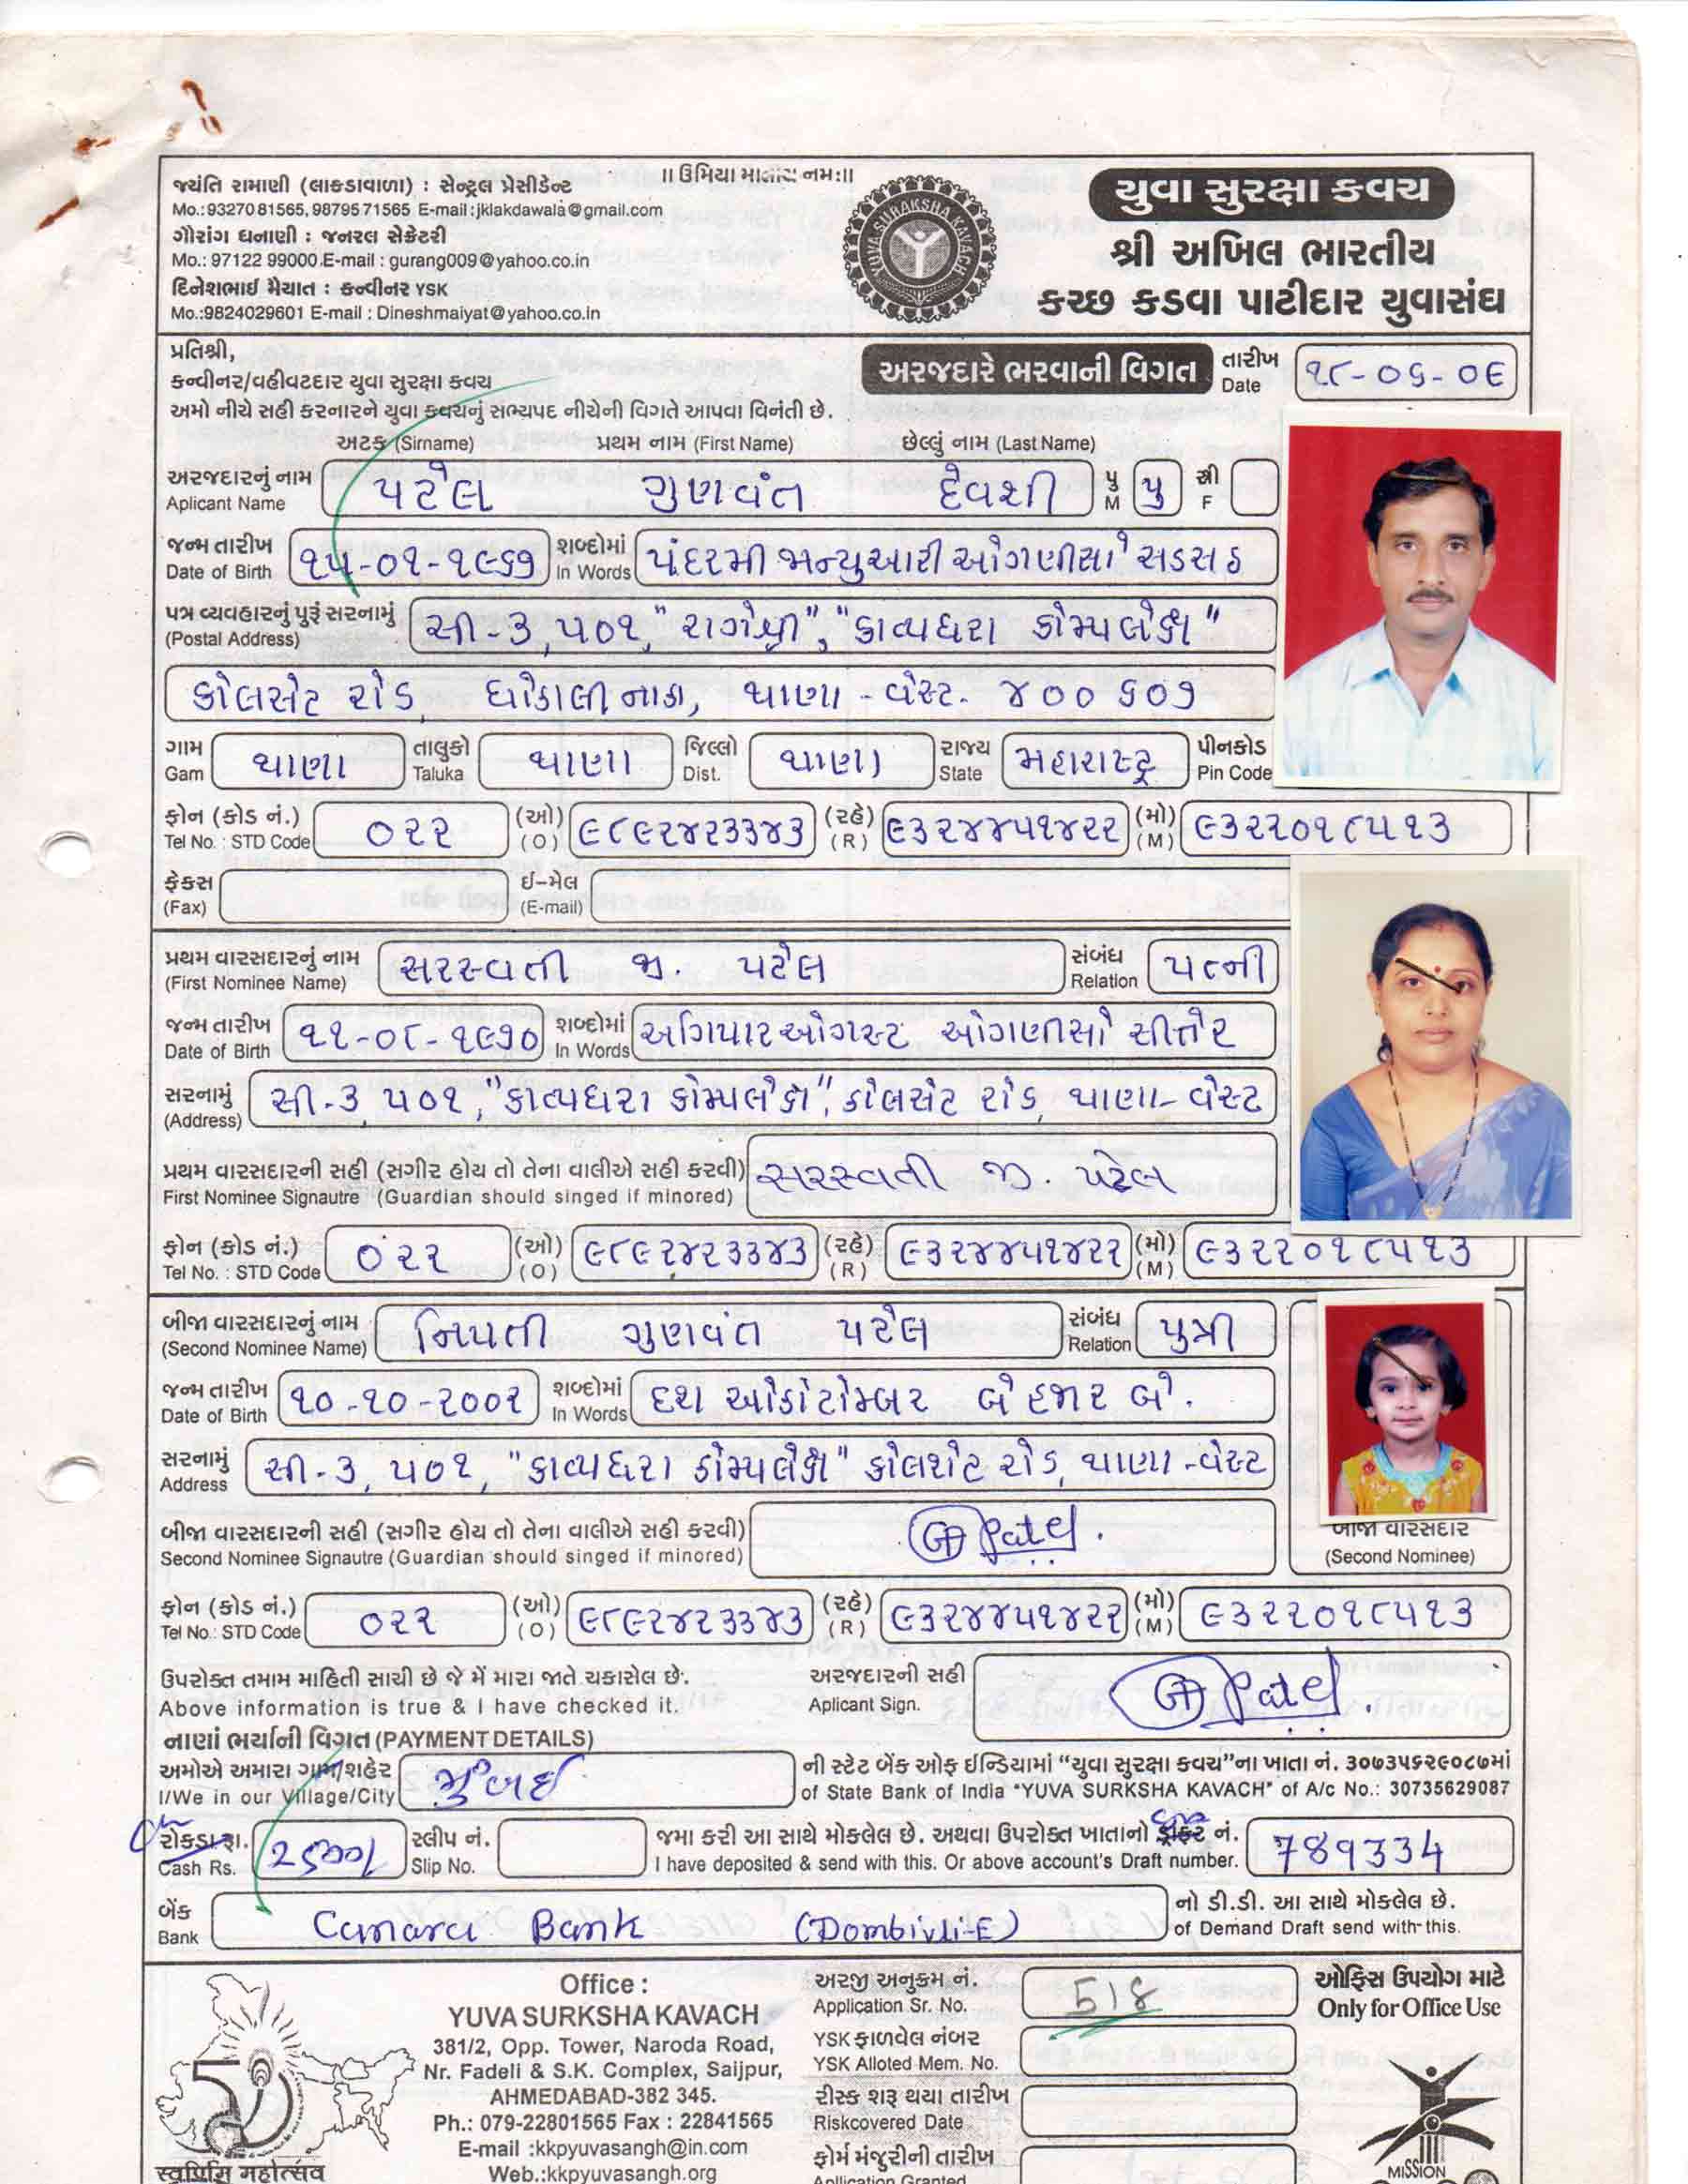 ॥ ઉમિયા માતાય નમઃ॥
જયંતિ રામાણી (લાકડાવાળા) : સેન્ટ્રલ પ્રેસીડેન્ટ
Mo.:9327081565,9879571565 E-mail :jklakdawala@gmail.com
ગૌરાંગ ધનાણી : જનરલ સેક્રેટરી
Mo.: 97122 99000.E-mail : gurang009@yahoo.co.in
દિનેશભાઇ મૈયાત : કન્વીનર YSK
Mo.:9824029601 E-mail : Dineshmaiyat@yahoo.co.in
YUVA SURAKSHA KAVACH
યુવા સુરક્ષા કવચ
શ્રી અખિલ ભારતીય
કચ્છ કડવા પાટીદાર યુવાસંઘ
પ્રતિશ્રી,
કન્વીનર/વહીવટદાર યુવા સુરક્ષા કવચ
અરજદારે ભરવાની વિગત તારીખ Date ૧૮-૦૬-૦૯
અમો નીચે સહી કરનારને યુવા કવચનું સભ્યપદ નીચેની વિગતે આપવા વિનંતી છે.
અટક (Sirname) પ્રથમ નામ (First Name) છેલ્લું નામ (Last Name)
અરજદારનું નામ Aplicant Name પટેલ ગુણવંત દેવશી પુ M પુ સ્રી F
જન્મ તારીખ Date of Birth ૧૫-૦૧-૧૯૬૭ શબ્દોમાં In Words પંદરમી જાન્યુઆરી ઓગણીસો સડસઠ
પત્ર વ્યવહારનું પુરૂં સરનામું (Postal Address) સી-૩, ૫૦૧, "રાગેશ્રી", "કાવ્યધરા કોમ્પલેક્ષ"
કોલસેટ રોડ, ઘોડાલી નાકા, થાણા - વેસ્ટ. ૪૦૦ ૬૦૭
ગામ Gam થાણા તાલુકો Taluka થાણા જિલ્લો Dist. થાણા રાજ્ય State મહારાષ્ટ્ર પીનકોડ Pin Code
ફોન (કોડ નં.) Tel No. : STD Code ૦૨૨ (ઓ) (O) ૯૮૯૨૪૨૩૩૪૩ (રહે) (R) ૯૩૨૪૪૫૧૪૨૨ (મો) (M) ૯૩૨૨૦૧૮૫૧૩
ફેક્સ (Fax) ઈ-મેલ (E-mail)
પ્રથમ વારસદારનું નામ (First Nominee Name) સરસ્વતી જી. પટેલ સંબંધ Relation પત્ની
જન્મ તારીખ Date of Birth ૧૧-૦૮-૧૯૭૦ શબ્દોમાં In Words અગિયાર ઓગસ્ટ ઓગણીસો સીત્તેર
સરનામું (Address) સી-૩, ૫૦૧, "કાવ્યધરા કોમ્પલેક્ષ", કોલસેટ રોડ, થાણા - વેસ્ટ
પ્રથમ વારસદારની સહી (સગીર હોય તો તેના વાલીએ સહી કરવી) સરસ્વતી જી. પટેલ
First Nominee Signautre (Guardian should singed if minored)
ફોન (કોડ નં.) Tel No. : STD Code ૦૨૨ (ઓ) (O) ૯૮૯૨૪૨૩૩૪૩ (રહે) (R) ૯૩૨૪૪૫૧૪૨૨ (મો) (M) ૯૩૨૨૦૧૮૫૧૩
બીજા વારસદારનું નામ (Second Nominee Name) નિયતી ગુણવંત પટેલ સંબંધ Relation પુત્રી
જન્મ તારીખ Date of Birth ૧૦-૧૦-૨૦૦૨ શબ્દોમાં In Words દશ ઓકટોમ્બર બે હજાર બે.
સરનામું Address સી-૩, ૫૦૧, "કાવ્યધરા કોમ્પલેક્ષ" કોલશેટ રોડ, થાણા - વેસ્ટ
બીજા વારસદારની સહી (સગીર હોય તો તેના વાલીએ સહી કરવી) Patel.
Second Nominee Signautre (Guardian should singed if minored)
બીજા વારસદાર
(Second Nominee)
ફોન (કોડ નં.) Tel No.: STD Code ૦૨૨ (ઓ) (O) ૯૮૯૨૪૨૩૩૪૩ (રહે) (R) ૯૩૨૪૪૫૧૪૨૨ (મો) (M) ૯૩૨૨૦૧૮૫૧૩
ઉપરોક્ત તમામ માહિતી સાચી છે જે મેં મારા જાતે ચકાસેલ છે. અરજદારની સહી
Above information is true & I have checked it. Aplicant Sign. Patel.
નાણાં ભર્યાની વિગત (PAYMENT DETAILS)
અમોએ અમારા ગામ/શહેર મુંબઇ ની સ્ટેટ બેંક ઓફ ઈન્ડિયામાં "યુવા સુરક્ષા કવચ"ના ખાતા નં. ૩૦૭૩૫૬૨૯૦૮૭માં
I/We in our Village/City of State Bank of India "YUVA SURKSHA KAVACH" of A/c No.: 30735629087
રોકડા રૂા. સ્લીપ નં. જમા કરી આ સાથે મોકલેલ છે. અથવા ઉપરોક્ત ખાતાનો ડ્રાફ્ટ નં. 789334
Cash Rs. Slip No. I have deposited & send with this. Or above account's Draft number.
બેંક Bank Canara Bank (Dombivli-E) નો ડી.ડી. આ સાથે મોકલેલ છે.
of Demand Draft send with this.
Office :
YUVA SURKSHA KAVACH
381/2, Opp. Tower, Naroda Road,
Nr. Fadeli & S.K. Complex, Saijpur,
AHMEDABAD-382 345.
Ph.: 079-22801565 Fax : 22841565
E-mail :kkpyuvasangh@in.com
Web.:kkpyuvasangh.org
અરજી અનુક્રમ નં.
Application Sr. No. 518
YSK ફાળવેલ નંબર
YSK Alloted Mem. No.
રીસ્ક શરૂ થયા તારીખ
Riskcovered Date
ફોર્મ મંજુરીની તારીખ
Apllication Granted
ઓફિસ ઉપયોગ માટે
Only for Office Use
મહોત્સવ
MISSION